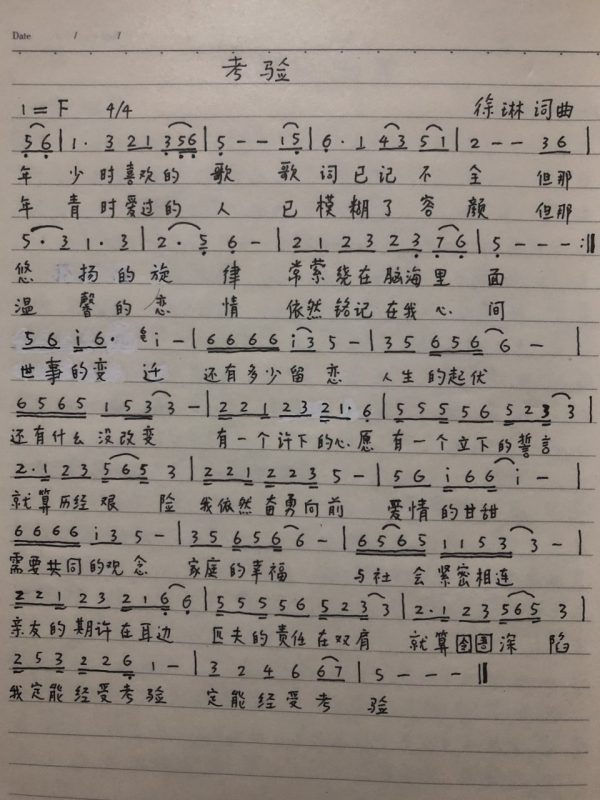 Date / /
考验
1=F 4/4 徐琳词曲
5 6 | 1· 3 2 1 3 5 6 | 5 - - 1 5 | 6 · 1 4 3 5 1 | 2 - - 3 6 |
年 少时喜欢的 歌 歌词已记不全 但那
年 青时爱过的 人 已模糊了容颜 但那
5 · 3 1 · 3 | 2 · 5 6 - | 2 1 2 3 2 3 7 6 | 5 - - - :||
悠 扬的旋 律 常萦绕在脑海里 面
温 馨的恋 情 依然铭记在我心 间
5 6 i 6 · i - | 6 6 6 6 i 3 5 - | 3 5 6 5 6 6 - |
世事的变 迁 还有多少留恋 人生的起伏
6 5 6 5 1 5 3 3 - | 2 2 1 2 3 2 1 · 6 | 5 5 5 5 6 5 2 3 3 |
还有什么没改变 有一个许下的心愿 有一个立下的誓言
2 · 1 2 3 5 6 5 3 | 2 2 1 2 2 3 5 - | 5 6 i 6 6 i - |
就算历经艰 险 我依然奋勇向前 爱情的甘甜
6 6 6 6 i 3 5 - | 3 5 6 5 6 6 - | 6 5 6 5 1 1 5 3 3 - |
需要共同的观念 家庭的幸福 与社会紧密相连
2 2 1 2 3 2 1 6 6 | 5 5 5 5 6 5 2 3 3 | 2 · 1 2 3 5 6 5 3 |
亲友的期许在耳边 匹夫的责任在双肩 就算深 陷
2 5 3 2 2 6 1 - | 3 2 4 6 6 7 | 5 - - - ||
我定能经受考验 定能经受考 验